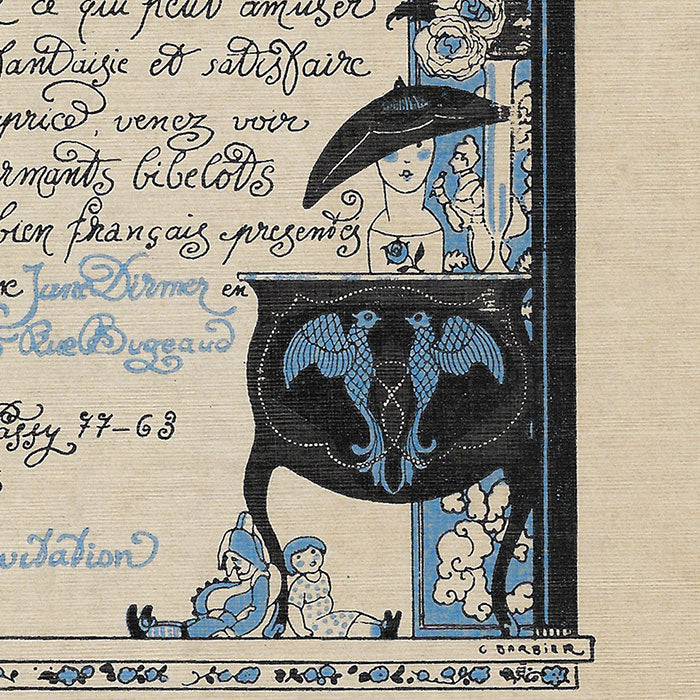 ce qui peut amuser
fantaisie et satisfaire
price, venez voir
rmants bibelots
bien français presentés
Jane Dirmer en
Rue Bugeaud
Passy 77-63
vitation
G BARBIER